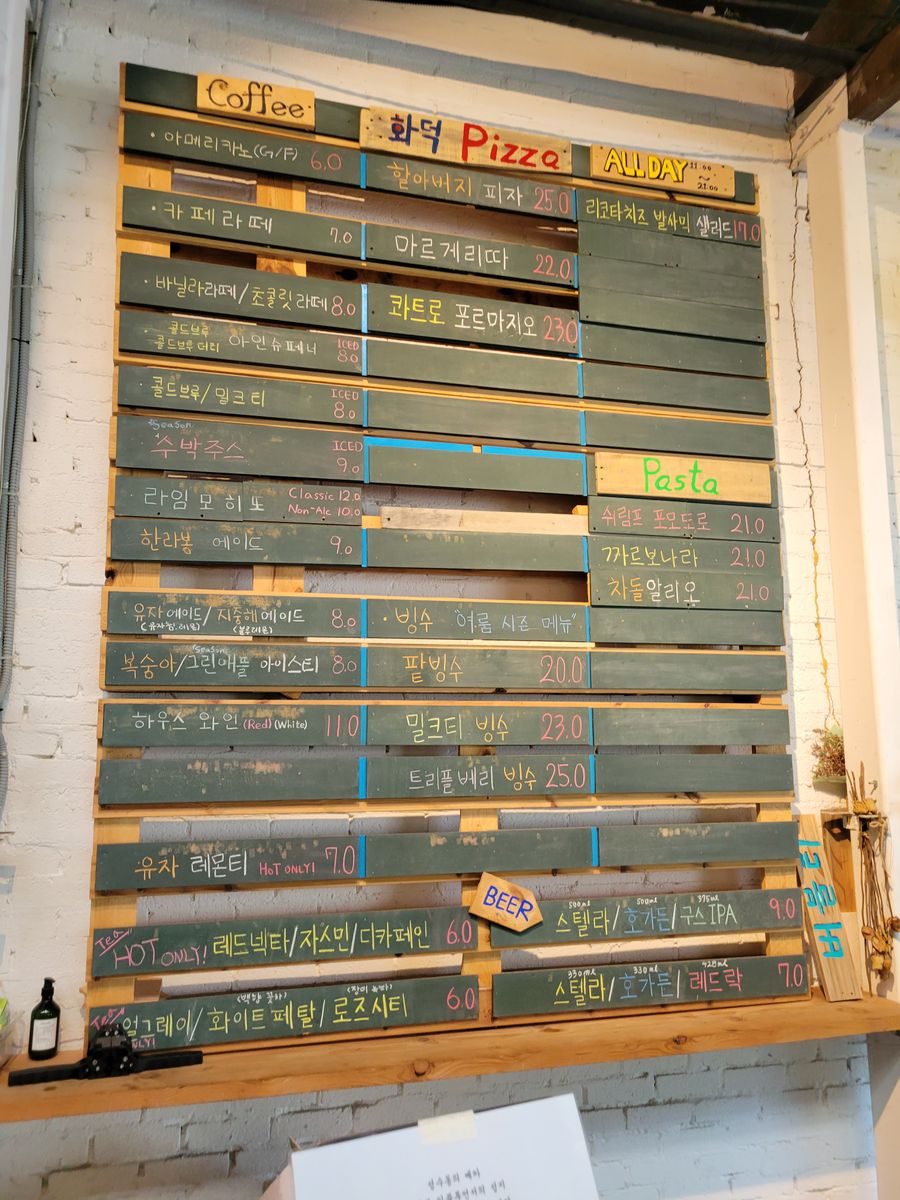 Coffee
• 아메리카노(G/F) 6.0
• 카페라떼 7.0
• 바닐라라떼/초콜릿라떼 8.0
콜드브루
콜드브루 더티 아인슈페너 ICED 8.0
• 콜드브루/밀크티 ICED 8.0
Season
수박주스 ICED 9.0
라임 모히또 Classic 12.0
Non-Alc 10.0
한라봉 에이드 9.0
유자에이드/지중해에이드 8.0
Season
복숭아/그린애플 아이스티 8.0
하우스 와인 (Red) (White) 11.0
유자 레몬티 HOT ONLY! 7.0
Tea
HOT ONLY! 레드넥타/자스민/디카페인 6.0
(백합 꽃차) (장미 녹차)
Tea 얼그레이/화이트페탈/로즈시티 6.0
화덕 Pizza
할아버지 피자 25.0
마르게리따 22.0
콰트로 포르마지오 23.0
• 빙수 "여름 시즌 메뉴"
팥빙수 20.0
밀크티 빙수 23.0
트리플베리 빙수 25.0
ALL DAY 11:00 ~ 21:00
리코타치즈 발사믹 샐러드 17.0
Pasta
쉬림프 포모도로 21.0
까르보나라 21.0
차돌알리오 21.0
BEER
500ml 500ml 375ml
스텔라/호가든/구스IPA 9.0
330ml 330ml 420ml
스텔라/호가든/레드락 7.0